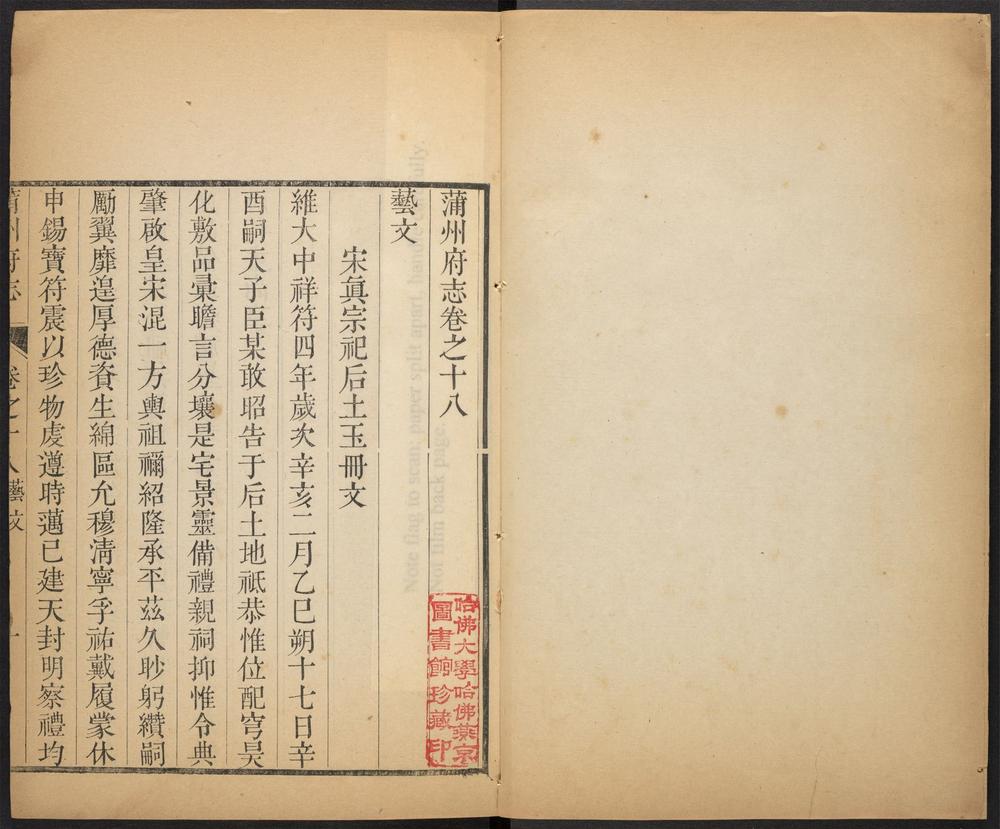 蒲州府志卷之十八
藝文
宋眞宗祀后土玉冊文
維大中祥符四年歲次辛亥二月乙巳朔十七日辛
酉嗣天子臣某敢昭告于后土地祇恭惟位配穹昊
化敷品彙瞻言分壤是宅景靈備禮親祠抑惟令典
肇啟皇宋混一方輿祖禰紹隆承平茲久眇躬纘嗣
勵翼靡遑厚德資生綿區允穆淸寧孚祐戴履蒙休
申錫寶符震以珍物虔遵時邁已建天封明察禮均
蒲州府志
卷之十八藝文
一
哈佛大學哈佛燕京
圖書館珍藏印
Note flag to scan: paper split apart, hand
ully.
Not film back page.